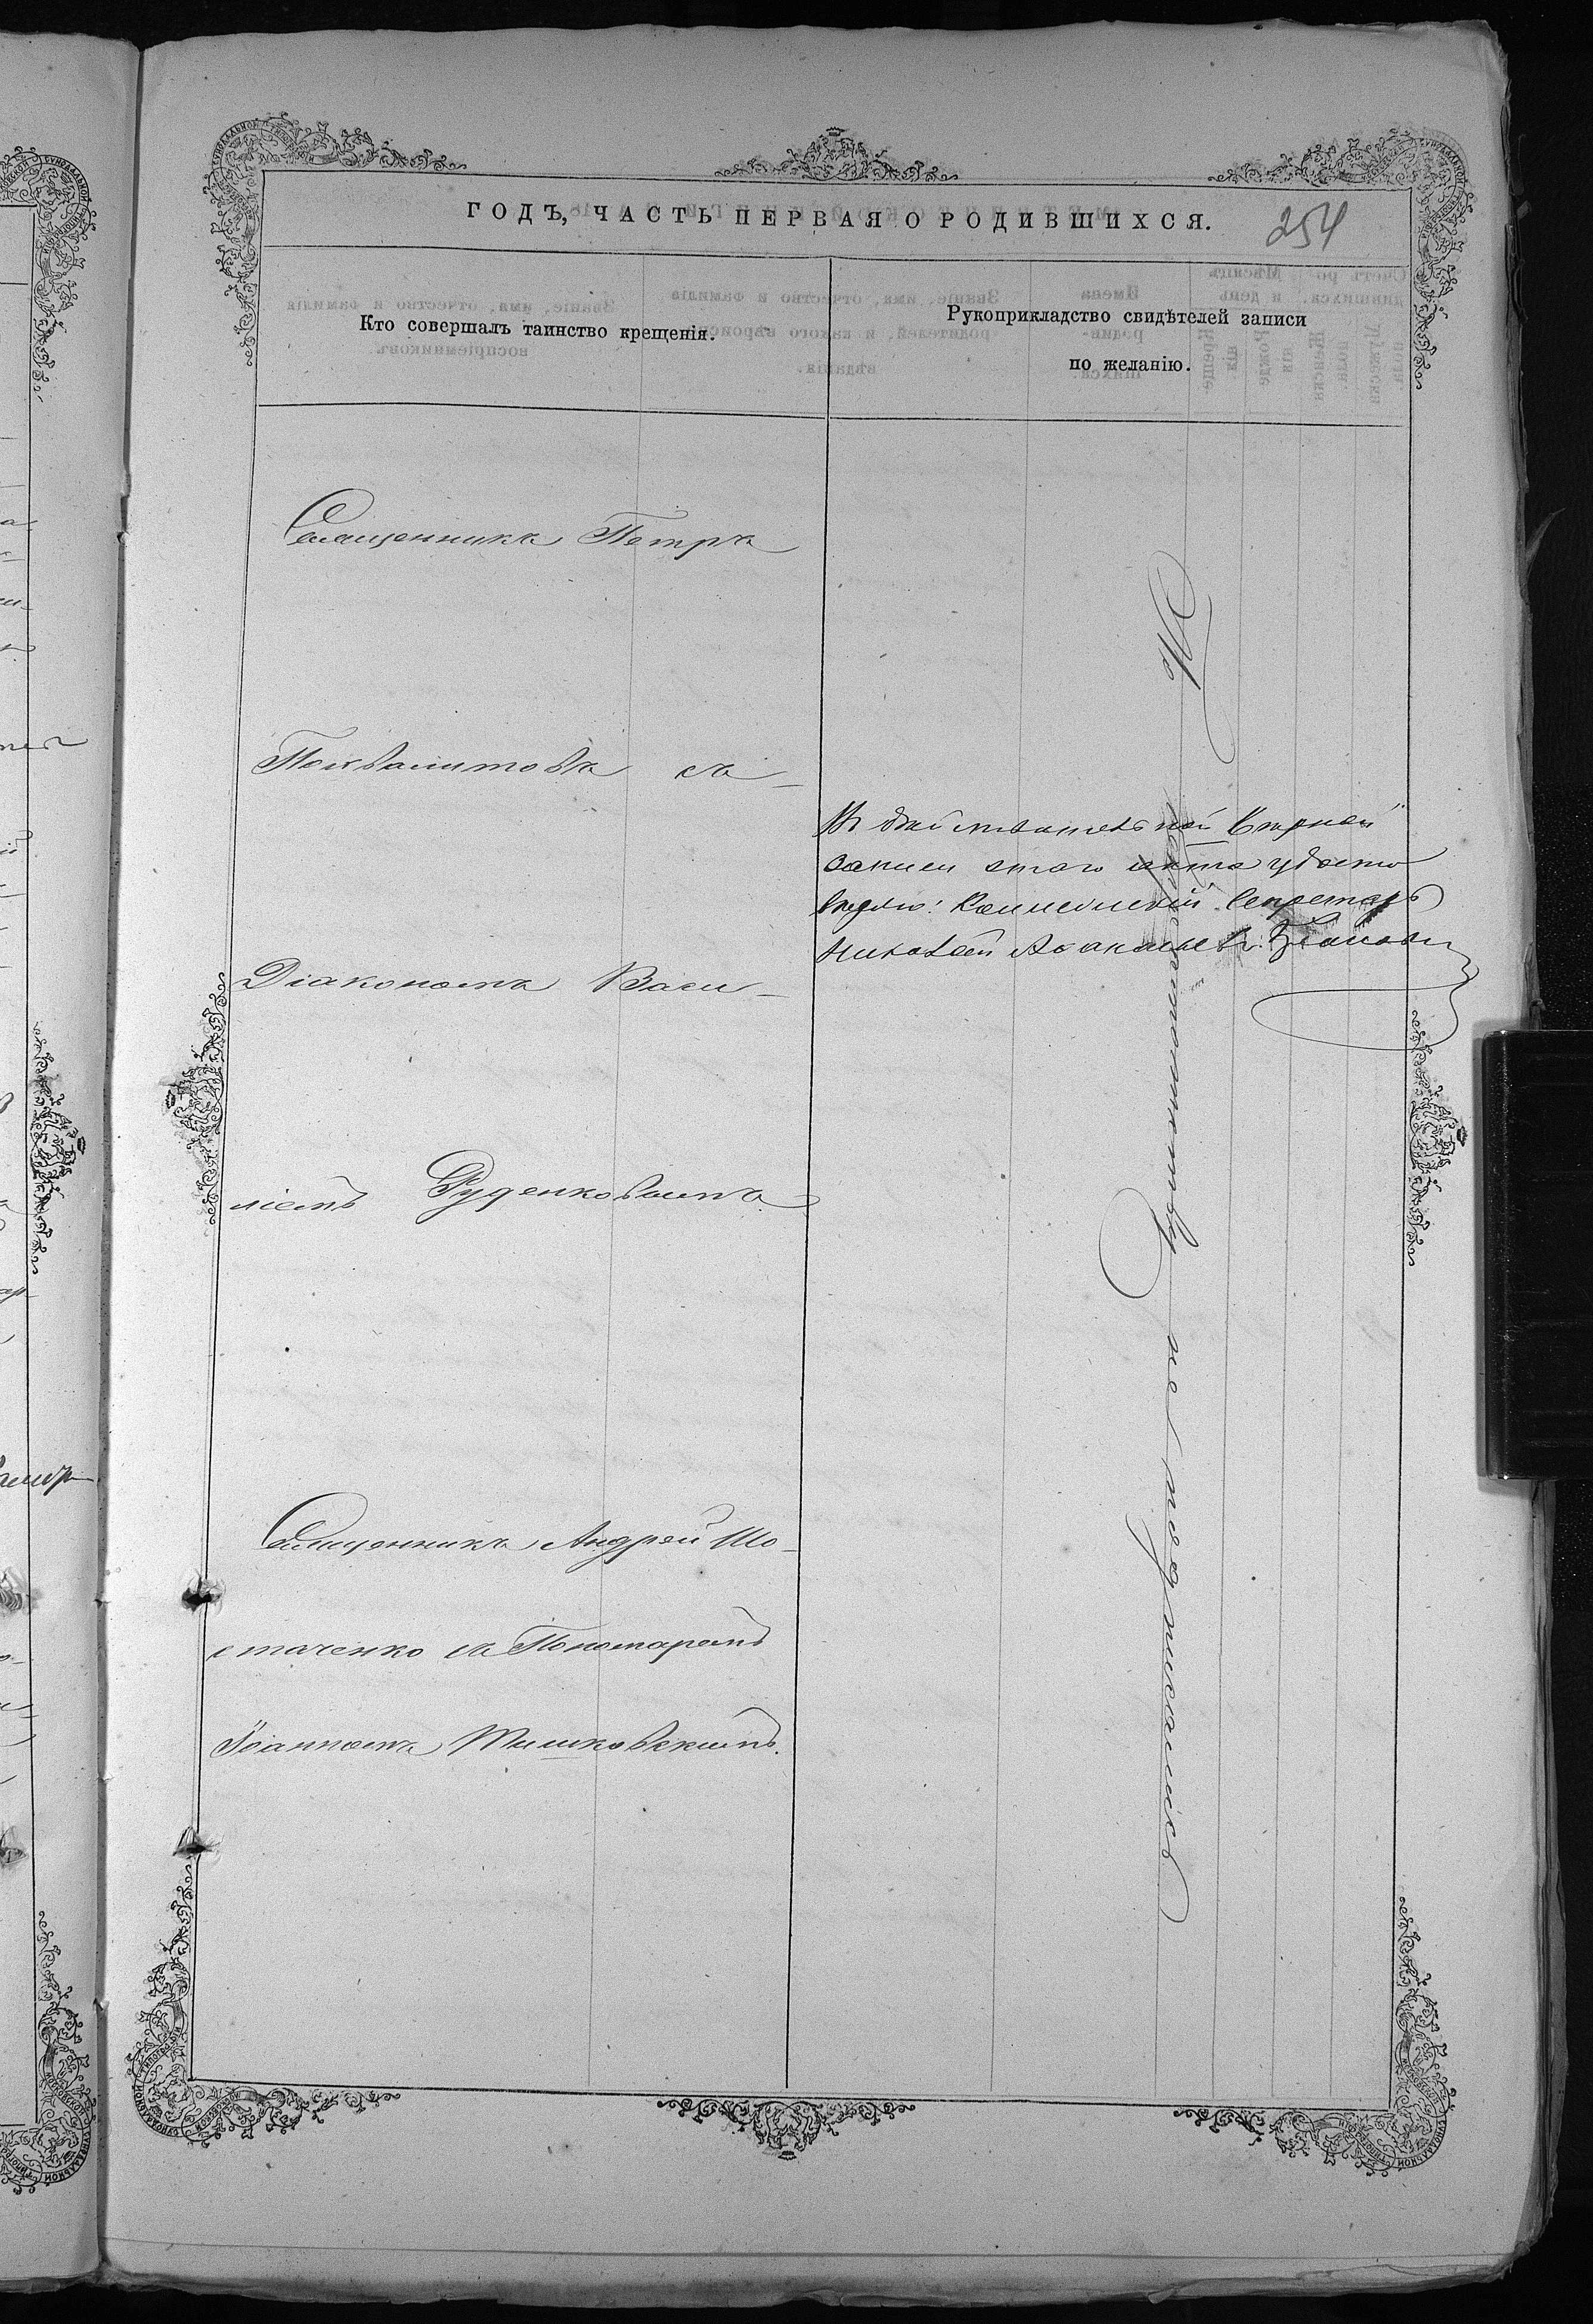 ГОДЪ, ЧАСТЬ ПЕРВАЯ О РОДИВШИХСЯ.
254
Кто совершалъ таинство крещенія.
Рукоприкладство свидѣтелей записи
по желанію.
Священникъ Петръ
Похвалитовъ съ
Діакономъ Васи-
ліемъ Руденковымъ
Священникъ Андрей Шо-
стаченко съ Пономаремъ
Іоанномъ Мишковскимъ.
Въ действительной верной
записи этаго акта удосто
веряю: Коллежскій Секретарь
Николай
По неграмотству не подписались